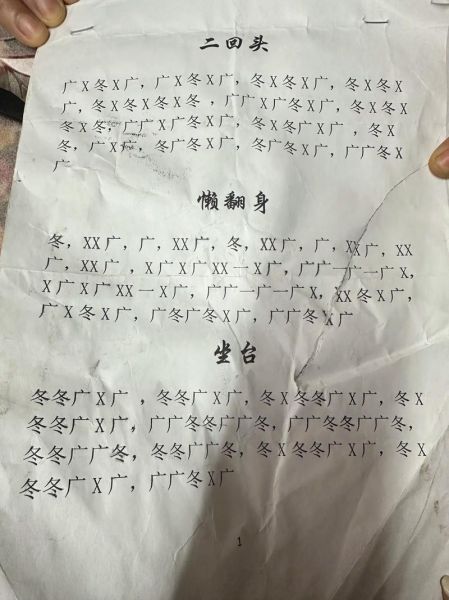 二回头
广X冬X广，广X冬X广，冬X冬X广，冬X冬X
广，冬X冬X冬X冬，广广X广冬X广，冬X冬X
冬X冬，广广X广冬X广，冬X冬广X广，冬X
冬，广X广，冬广冬X广，冬广冬X广，广广冬X
广
懒翻身
冬，XX广，广，XX广，冬，XX广，广，XX广，XX
广，XX广，X广X广XX一X广，广广一广一广X，
X广X广XX一X广，广广一广一广X，XX冬X广，
广X冬X广，广冬广冬X广，广广冬X广
坐台
冬冬广X广，冬冬广X广，冬X冬冬广X广，冬X
冬冬广X广，广广冬冬广广冬，广广冬冬广广冬，
冬冬广广冬，冬冬广广冬，冬X冬冬广X广，冬X
冬冬广X广，广广冬X广
1